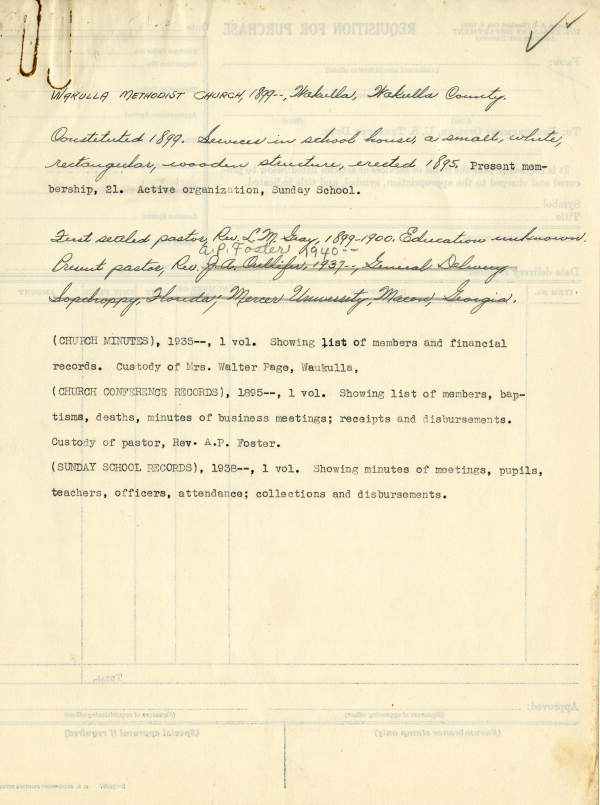 WAKULLA METHODIST CHURCH, 1899--, Wakulla, Wakulla County.
Constituted 1899. Services in school house, a small, white,
rectangular, wooden structure, erected 1895. Present mem-
bership, 21. Active organization, Sunday School.
First settled pastor, Rev. L. M. Gray, 1899-1900. Education unknown.
A. P. Foster 1940--
Present pastor, Rev. J. A. 1937--, General Delivery
Sopchoppy, Florida; Mercer University, Macon, Georgia.
(CHURCH MINUTES), 1935--, 1 vol. Showing list of members and financial
records. Custody of Mrs. Walter Page, Waukulla,
(CHURCH CONFERENCE RECORDS), 1895--, 1 vol. Showing list of members, bap-
tisms, deaths, minutes of business meetings; receipts and disbursements.
Custody of pastor, Rev. A.P. Foster.
(SUNDAY SCHOOL RECORDS), 1938--, 1 vol. Showing minutes of meetings, pupils,
teachers, officers, attendance; collections and disbursements.
REQUISITION FOR PURCHASE
TOTAL
Approved:
(Signature of requisitioning officer)
(Signature of approving officer)
(Special approval if required)
(Encumbrance stamp only)